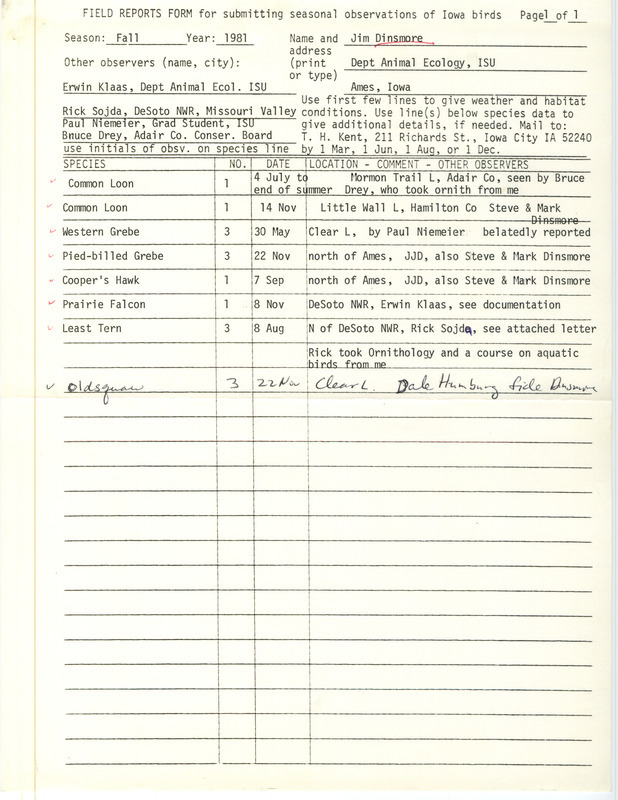 FIELD REPORTS FORM for submitting seasonal observations of Iowa birds Page1 of 1
Season: Fall Year: 1981 Name and Jim Dinsmore
address
Other observers (name, city): (print Dept Animal Ecology, ISU
or type)
Erwin Klaas, Dept Animal Ecol. ISU Ames, Iowa
Use first few lines to give weather and habitat
Rick Sojda, DeSoto NWR, Missouri Valley conditions. Use line(s) below species data to
Paul Niemeier, Grad Student, ISU give additional details, if needed. Mail to:
Bruce Drey, Adair Co. Conser. Board T. H. Kent, 211 Richards St., Iowa City IA 52240
use initials of obsv. on species line by 1 Mar, 1 Jun, 1 Aug, or 1 Dec.
SPECIES NO. DATE LOCATION - COMMENT - OTHER OBSERVERS
4 July to Mormon Trail L, Adair Co, seen by Bruce
Common Loon 1 end of summer Drey, who took ornith from me
Common Loon 1 14 Nov Little Wall L, Hamilton Co Steve & Mark
Dinsmore
Western Grebe 3 30 May Clear L, by Paul Niemeier belatedly reported
Pied-billed Grebe 3 22 Nov north of Ames, JJD, also Steve & Mark Dinsmore
Cooper's Hawk 1 7 Sep north of Ames, JJD, also Steve & Mark Dinsmore
Prairie Falcon 1 8 Nov DeSoto NWR, Erwin Klaas, see documentation
Least Tern 3 8 Aug N of DeSoto NWR, Rick Sojda, see attached letter
Rick took Ornithology and a course on aquatic
birds from me
Oldsquaw 3 22 Nov Clear L. Dale Humburg fide Dinsmore